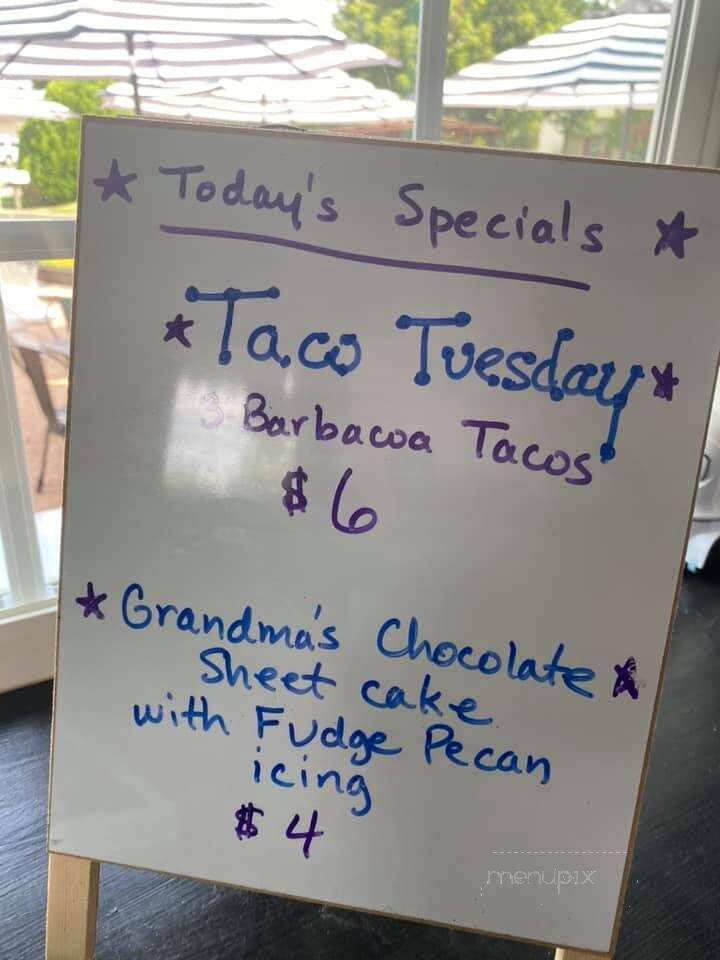 Today's Specials
Taco Tuesday
3 Barbacoa Tacos
$6
Grandma's Chocolate
Sheet cake
with Fudge Pecan
icing
$4
menupix